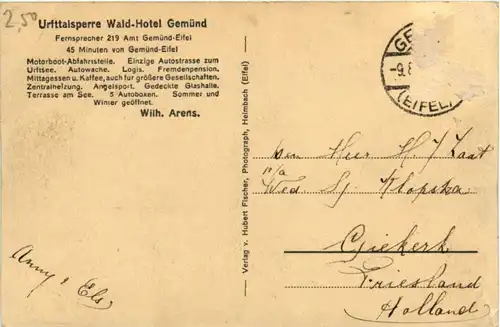 2,50
Urfttalsperre Wald-Hotel Gemünd
Fernsprecher 219 Amt Gemünd-Eifel
45 Minuten von Gemünd-Eifel
Motorboot-Abfahrtstelle. Einzige Autostrasse zum
Urftsee. Autowache. Logis. Fremdenpension.
Mittagessen u. Kaffee, auch für größere Gesellschaften.
Zentralheizung. Angelsport. Gedeckte Glashalle.
Terrasse am See. 5 Autoboxen. Sommer und
Winter geöffnet.
Wilh. Arens.
Anny, Els,
Verlag v. Hubert Fischer, Photograph, Heimbach (Eifel)
GE
-9.8
(EIFEL)
den Heer H. J
p/a
Wed. Sj. Klopska
Giekerk
Friesland
Holland